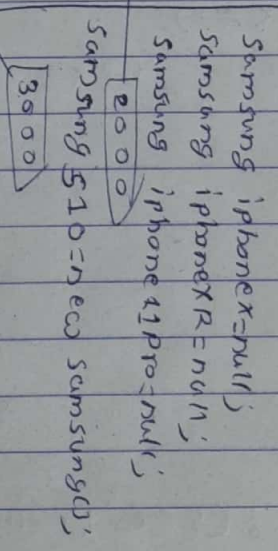 Samsung iphonex=null;
Samsung iphoneXR=null;
Samsung iphone11pro=null;
2000
Samsung S10=new Samsung();
3000